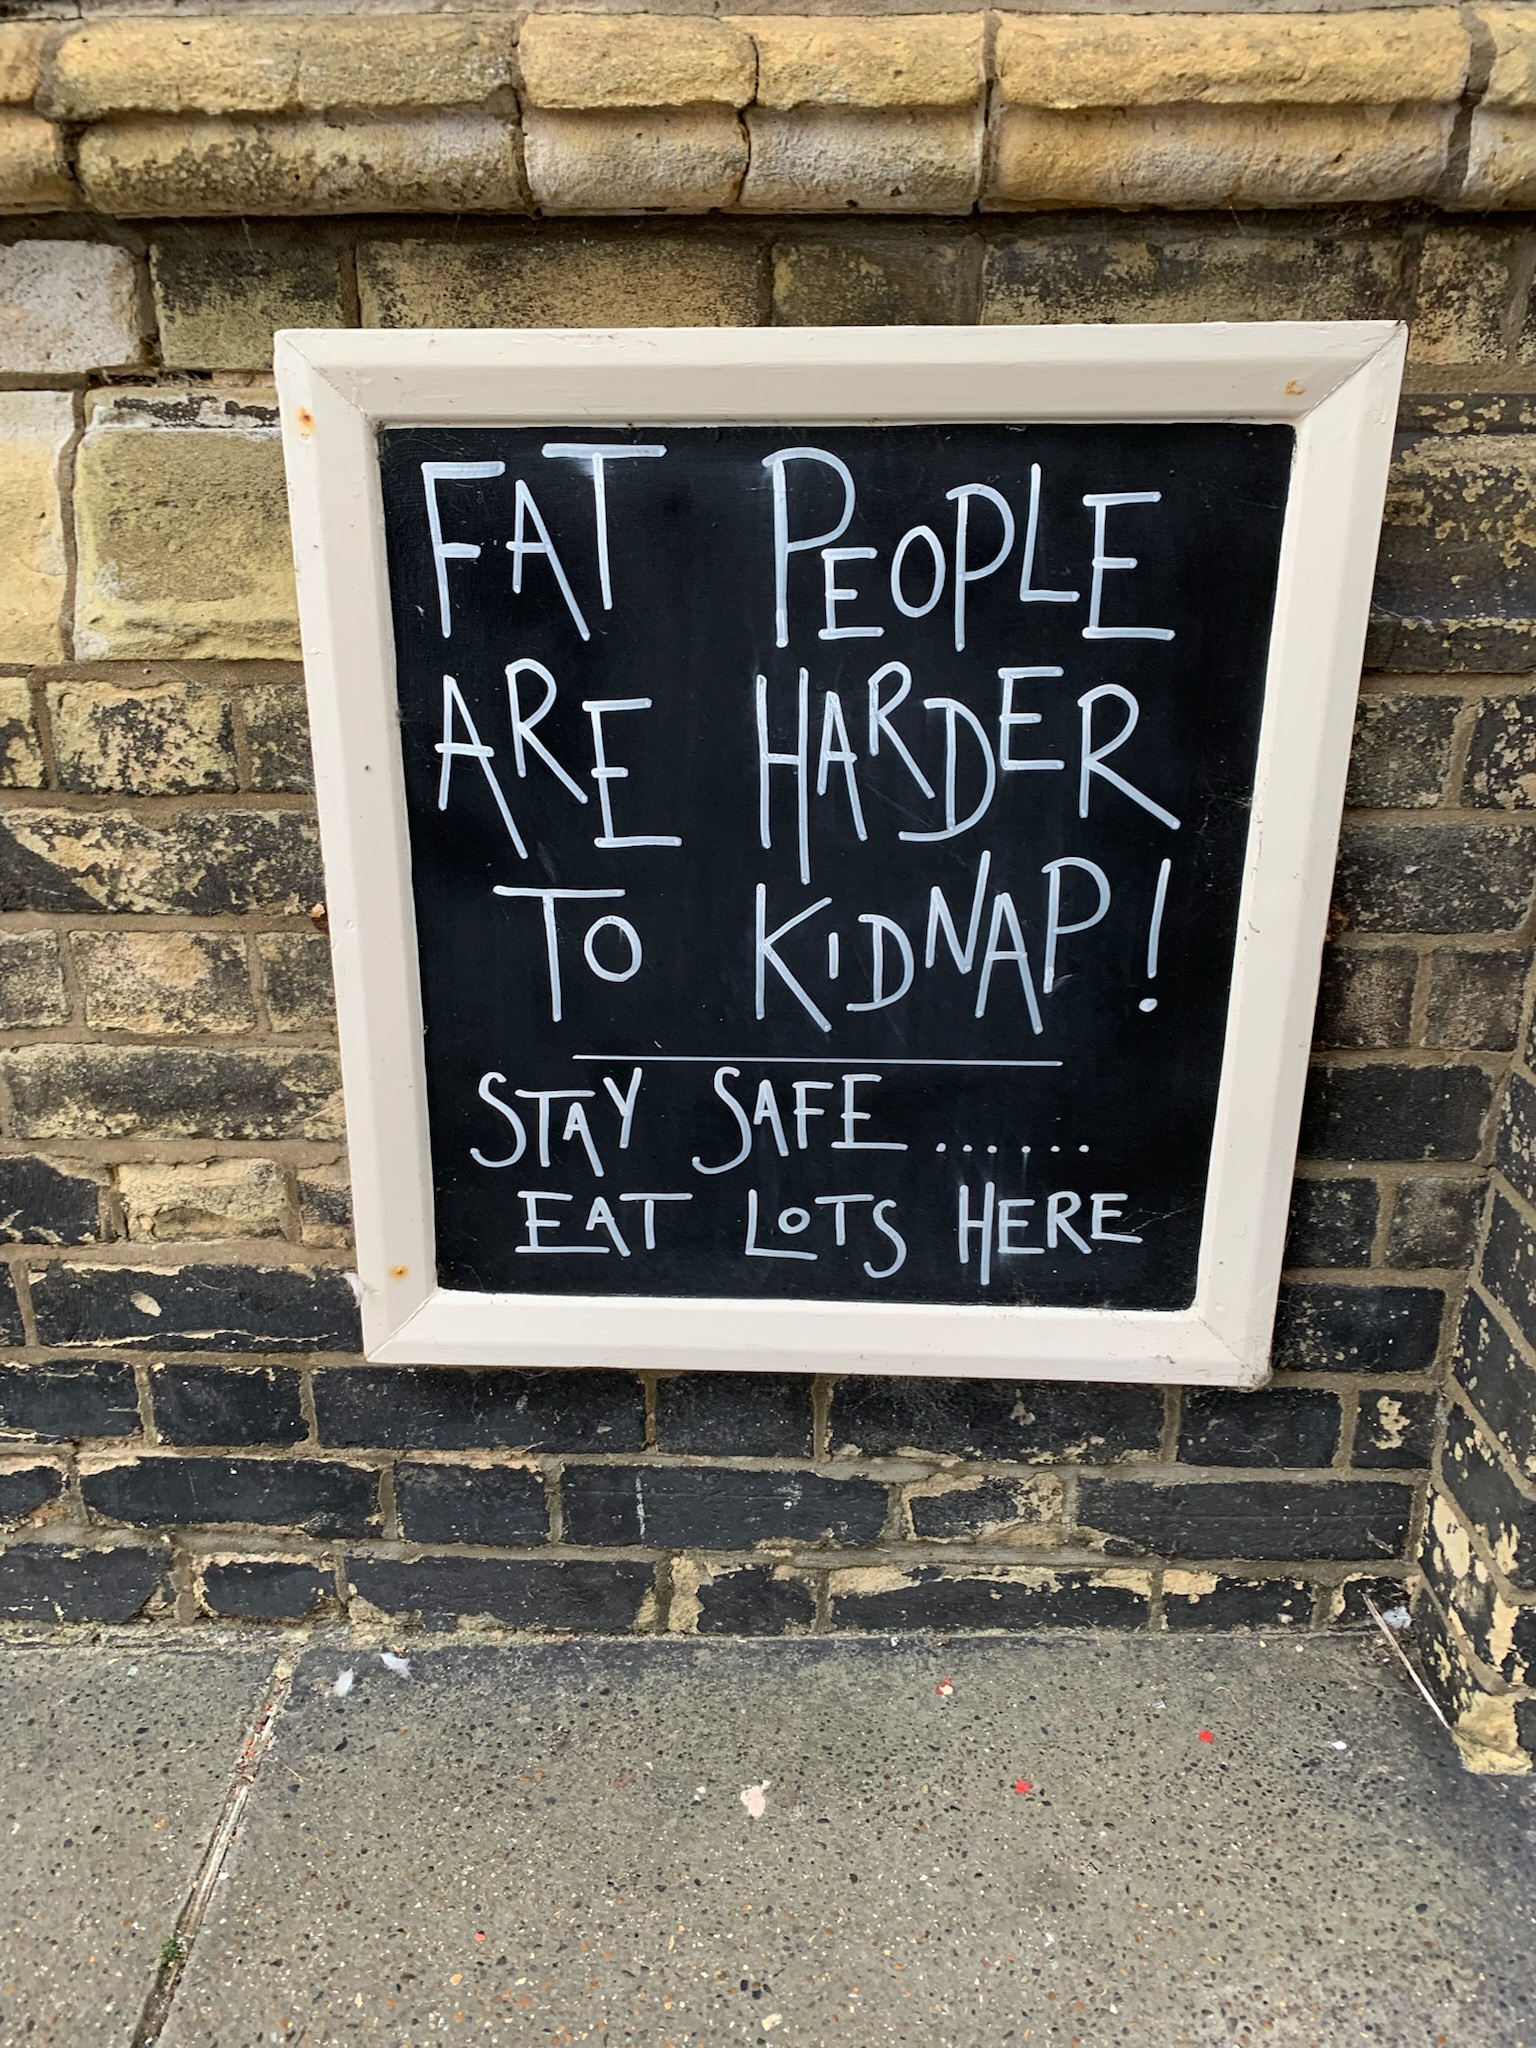 FAT PEOPLE
ARE HARDER
TO KIDNAP!
STAY SAFE......
EAT LOTS HERE